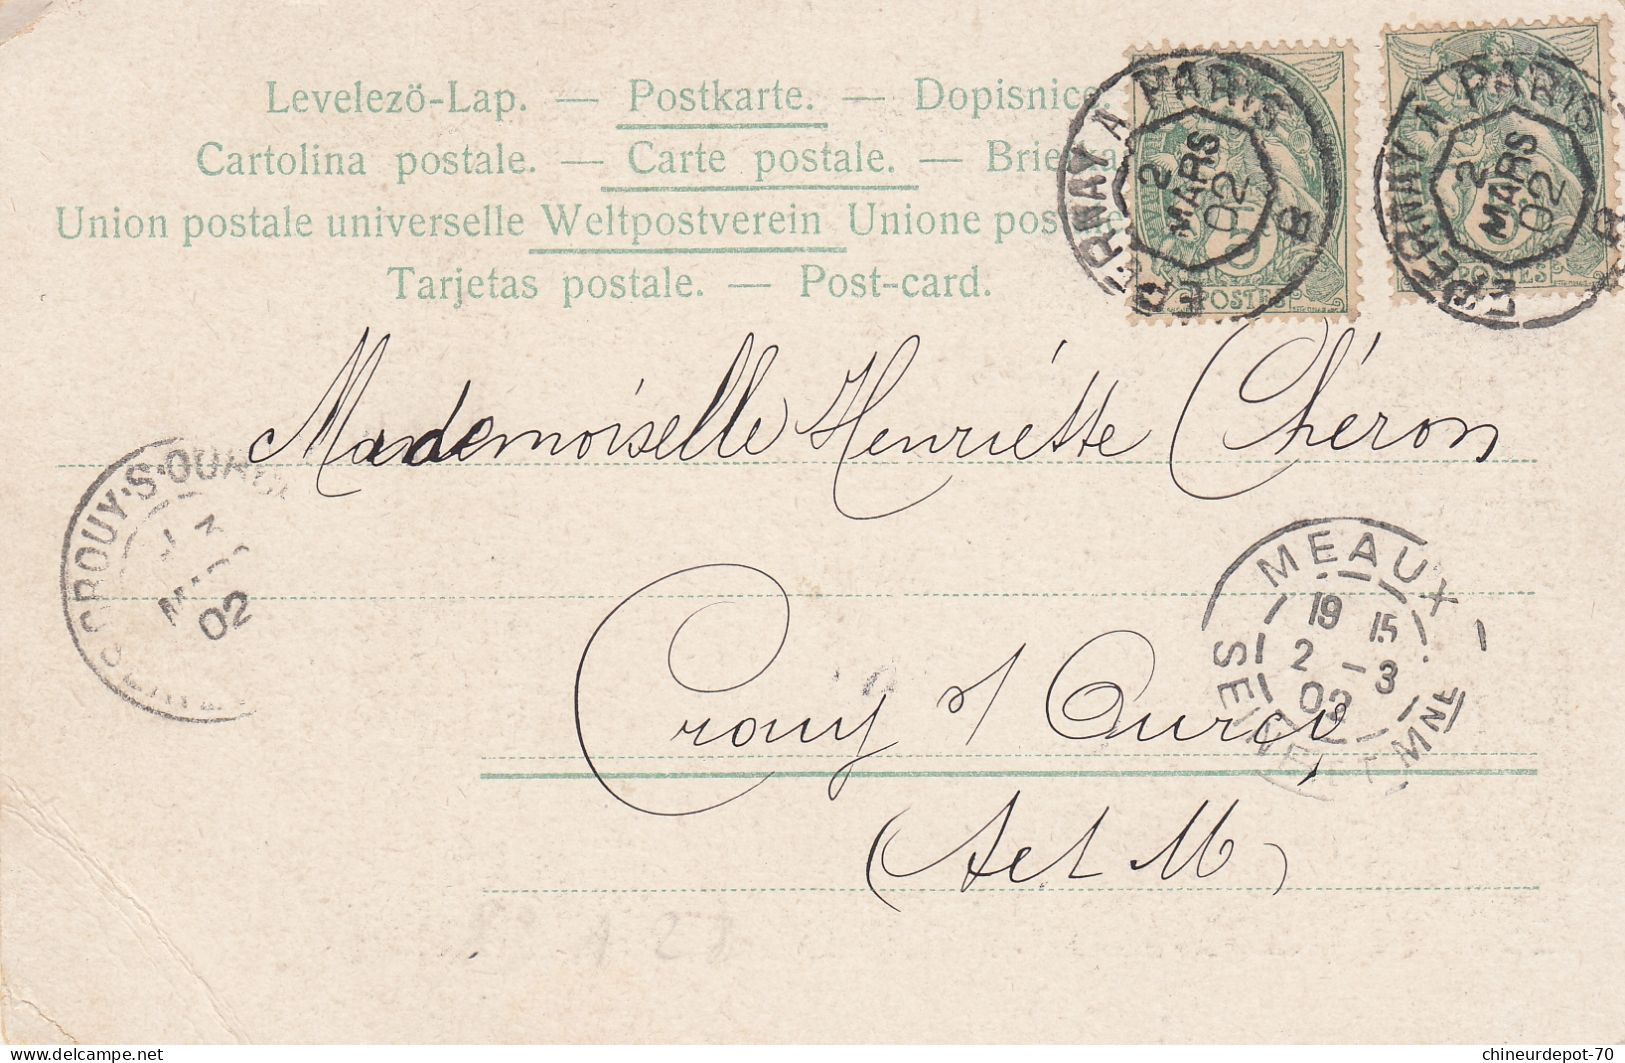 Levelezö-Lap. — Postkarte. — Dopisnice.
Cartolina postale. — Carte postale. —
Union postale universelle Weltpostverein Unione postale
Tarjetas postale. — Post-card.
EPERNAY A PARIS
2
MARS
02
B
5
POSTES
EPERNAY A PARIS
2
MARS
02
B
5
POSTES
Mademoiselle Henriette Chéron
CROUY-S-OURCQ
02
MEAUX
19 15
2 - 3
02
SEINE ET MNE
Crouy s/ Ourcq
(S et M)
delcampe.net
chineurdepot-70